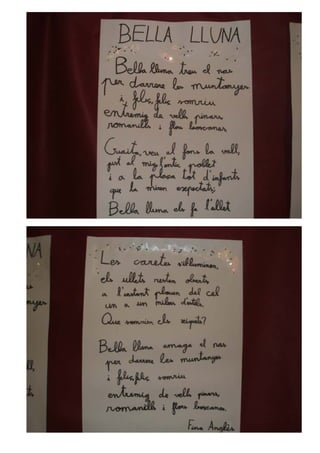 BELLA LLUNA
Bella lluna treu el nas
per darrere les muntanyes
i feliç, feliç somriu
entremig de vells pinars,
romanills i flors boscanes.
Guaita, veu al fons la vall,
just al mig l'antic poblet
i a la plaça tot d'infants
que la miren expectants;
Bella lluna els fa l'ullet
NA
Les caretes s'il·luminen,
els ullets resten oberts
a l'instant pilonen del cel
un a un milers d'estels.
Que somnien els xiquets?
Bella lluna amaga el nas
per darrere les muntanyes
i feliç, feliç somriu
entremig de vells pinars,
romanills i flors boscanes.
Fina Anglès